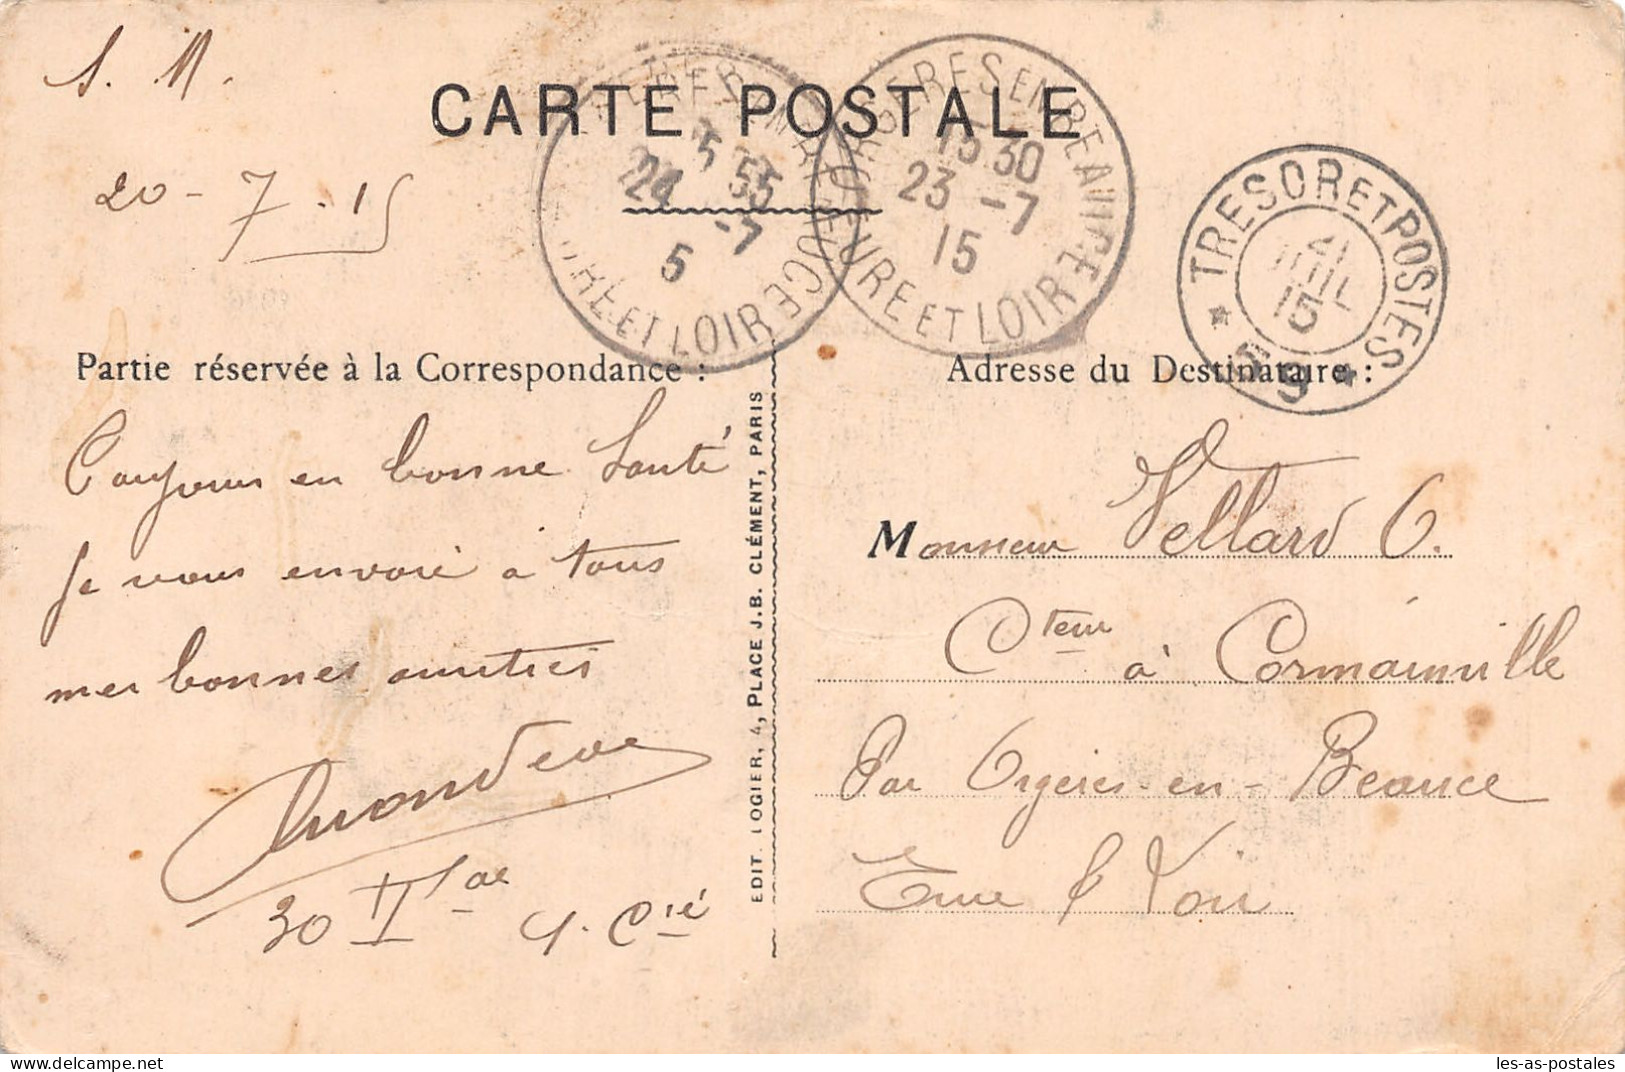 S. M.
CARTE POSTALE
20 - 7 . 15
ORGERES EN BEAUCE
15 30
23 -7
15
EURE ET LOIR
5 55
24 -7
5
ET LOIR
TRESOR ET POSTES
21
JUIL
15
* 9 *
Partie réservée à la Correspondance :
Adresse du Destinataire :
Toujours en bonne Santé
je vous envoie à tous
mes bonnes amitiés
30 Tal 4. Cie
EDIT. LOGIER, 4, PLACE J.B. CLÉMENT, PARIS
Monsieur Vellard O.
Cteur à Cormainville
Par Orgères-en-Beauce
Eure & Loir
les-as-postales